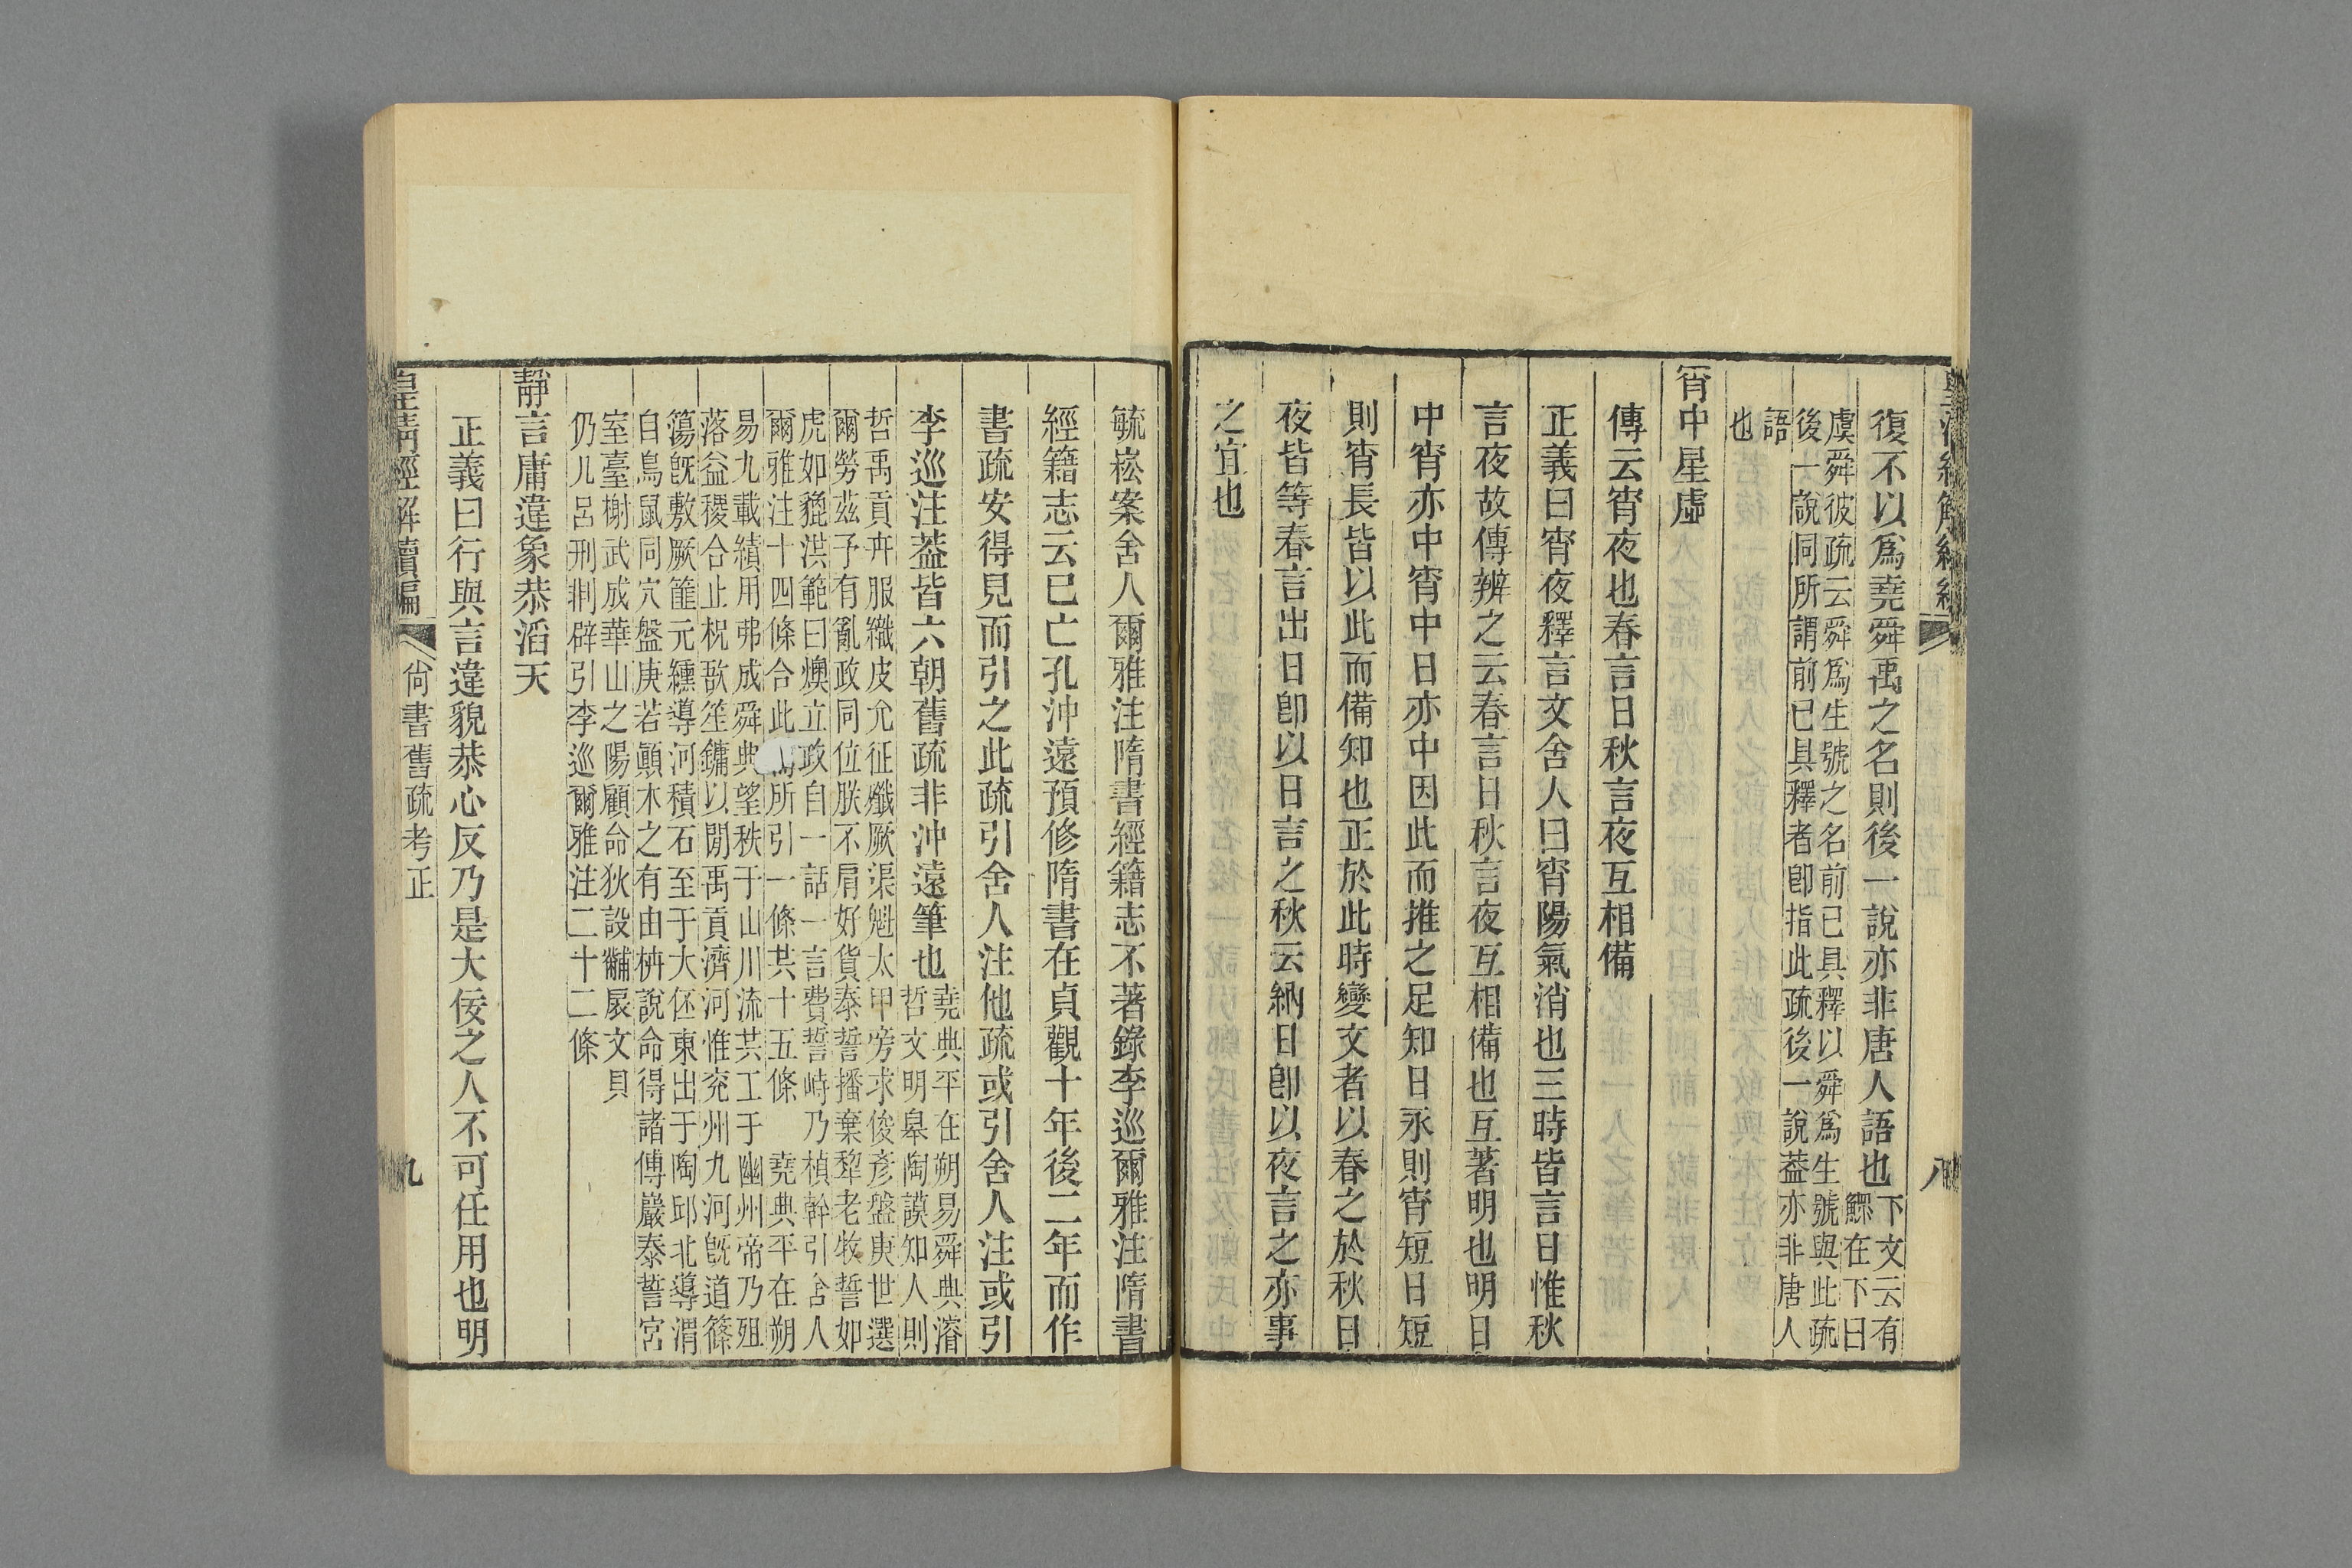 復不以爲堯舜禹之名則後一說亦非唐人語也下文云有
鰥在下曰
虞舜彼疏云舜爲生號之名前已具釋以舜爲生號與此疏
後一說同所謂前已具釋者卽指此疏後一說葢亦非唐人
語
也
宵中星虛
傳云宵夜也春言日秋言夜互相備
正義曰宵夜釋言文舍人曰宵陽氣消也三時皆言日惟秋
言夜故傳辨之云春言日秋言夜互相備也互著明也明日
中宵亦中宵中日亦中因此而推之足知日永則宵短日短
則宵長皆以此而備知也正於此時變文者以春之於秋日
夜皆等春言出日卽以日言之秋云納日卽以夜言之亦事
之宜也
八
毓崧案舍人爾雅注隋書經籍志不著錄李巡爾雅注隋書
經籍志云已亡孔沖遠預修隋書在貞觀十年後二年而作
書疏安得見而引之此疏引舍人注他疏或引舍人注或引
李巡注葢皆六朝舊疏非沖遠筆也堯典平在朔易舜典濬
哲文明皋陶謨知人則
哲禹貢卉服織皮允征殲厥渠魁太甲旁求俊彥盤庚世選
爾勞茲予有亂政同位朕不肩好貨泰誓播棄犂老牧誓如
虎如貔洪範曰燠立政自一話一言費誓峙乃楨幹引舍人
爾雅注十四條合此所引一條共十五條 堯典平在朔
易九載績用弗成舜典望秩于山川流共工于幽州帝乃殂
落益稷合止柷敔笙鏞以閒禹貢濟河惟兗州九河旣道篠
簜旣敷厥篚元纁導河積石至于大伾東出于陶邱北導渭
自鳥鼠同穴盤庚若顚木之有由枿說命得諸傅巖泰誓宮
室臺榭武成華山之陽顧命狄設黼扆文貝
仍几呂刑剕辟引李巡爾雅注二十二條
靜言庸違象恭滔天
正義曰行與言違貌恭心反乃是大佞之人不可任用也明
皇淸經解續編
尙書舊疏考正
九